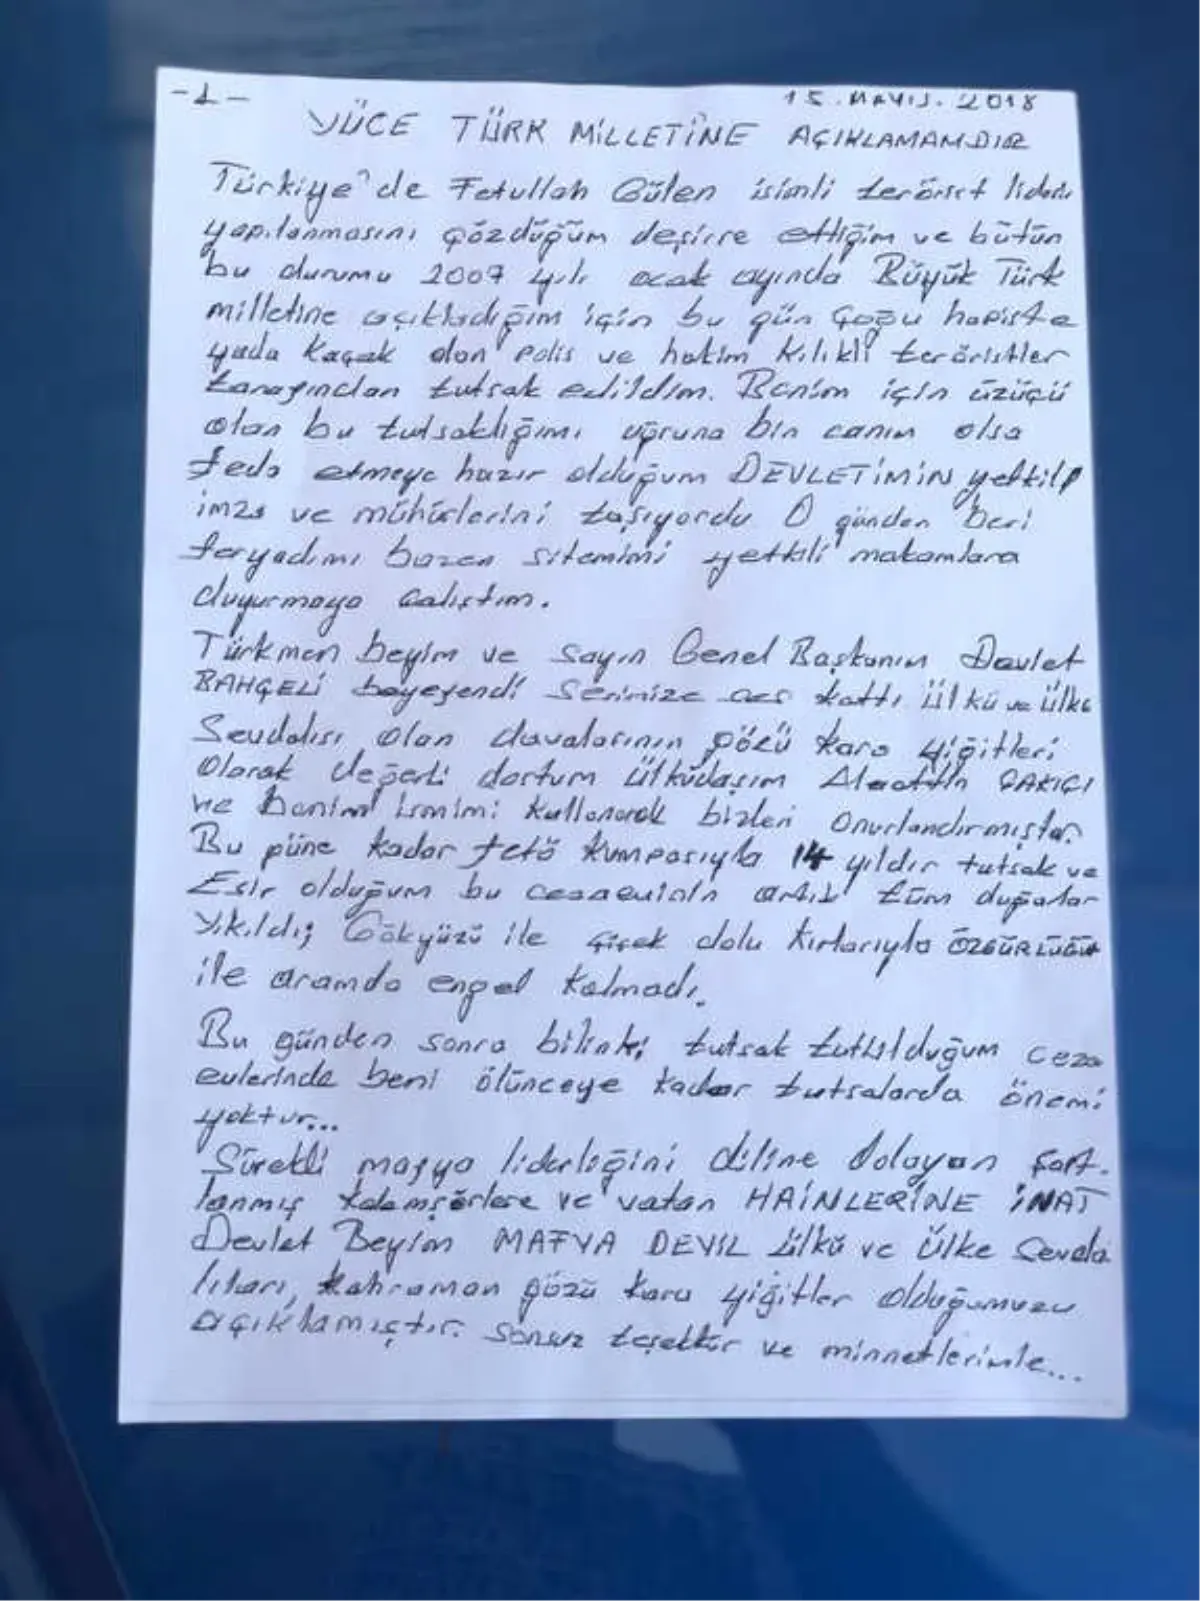 -1-
15. MAYIS. 2018
YÜCE TÜRK MİLLETİNE AÇIKLAMAMDIR
Türkiye'de Fetullah Gülen isimli terörist lideri
yapılanmasını çözdüğüm deşifre ettiğim ve bütün
bu durumu 2007 yılı ocak ayında Büyük Türk
milletine açıkladığım için bu gün Çoğu hapiste
yada kaçak olan polis ve hakim kılıklı teröristler
tarafından tutsak edildim. Benim için üzücü
olan bu tutsaklığımı uğruna bin canım olsa
feda etmeye hazır olduğum DEVLETİMİN yetkili
imza ve mühürlerini taşıyordu O günden beri
feryadımı bazen sitemimi yetkili makamlara
duyurmaya çalıştım.
Türkmen beyim ve sayın Genel Başkanım Devlet
BAHÇELİ beyefendi sesimize ses kattı ülkü ve ülke
Sevdalısı olan davalarının gözü kara yiğitleri
Olarak değerli dostum ülküdaşım Alaattin ÇAKICI
ve benim ismimi kullanarak bizleri onurlandırmıştır.
Bu güne kadar fetö kumpasıyla 14 yıldır tutsak ve
Esir olduğum bu cezaevinin artık tüm duvarlar
Yıkıldı; Gökyüzü ile çiçek dolu kırlarıyla ÖZGÜRLÜĞÜM
ile aramda engel kalmadı.
Bu günden sonra bilinki; tutsak tutulduğum ceza
evlerinde beni ölünceye kadar tutsalarda önemi
yoktur...
Sürekli mafya liderliğini diline dolayan şart.
lanmış kalemşörlere ve vatan HAİNLERİNE İNAT
Devlet Beyim MAFYA DEĞİL ülkü ve Ülke Sevda
lıları, kahraman gözü kara yiğitler olduğumuzu
açıklamıştır. sonsuz teşekkür ve minnetlerimle...